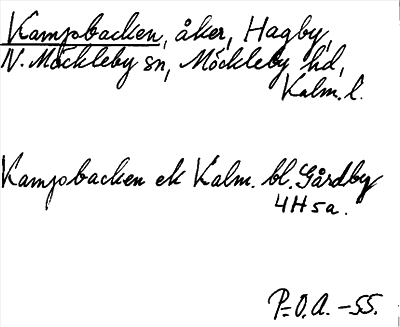 Kampsbacken, åker, Hagby,
N. Möckleby sn, Möckleby hd,
Kalm. l.
Kampsbacken ek Kalm. bl. Gårdby
4H5a.
P-O.A. -55.